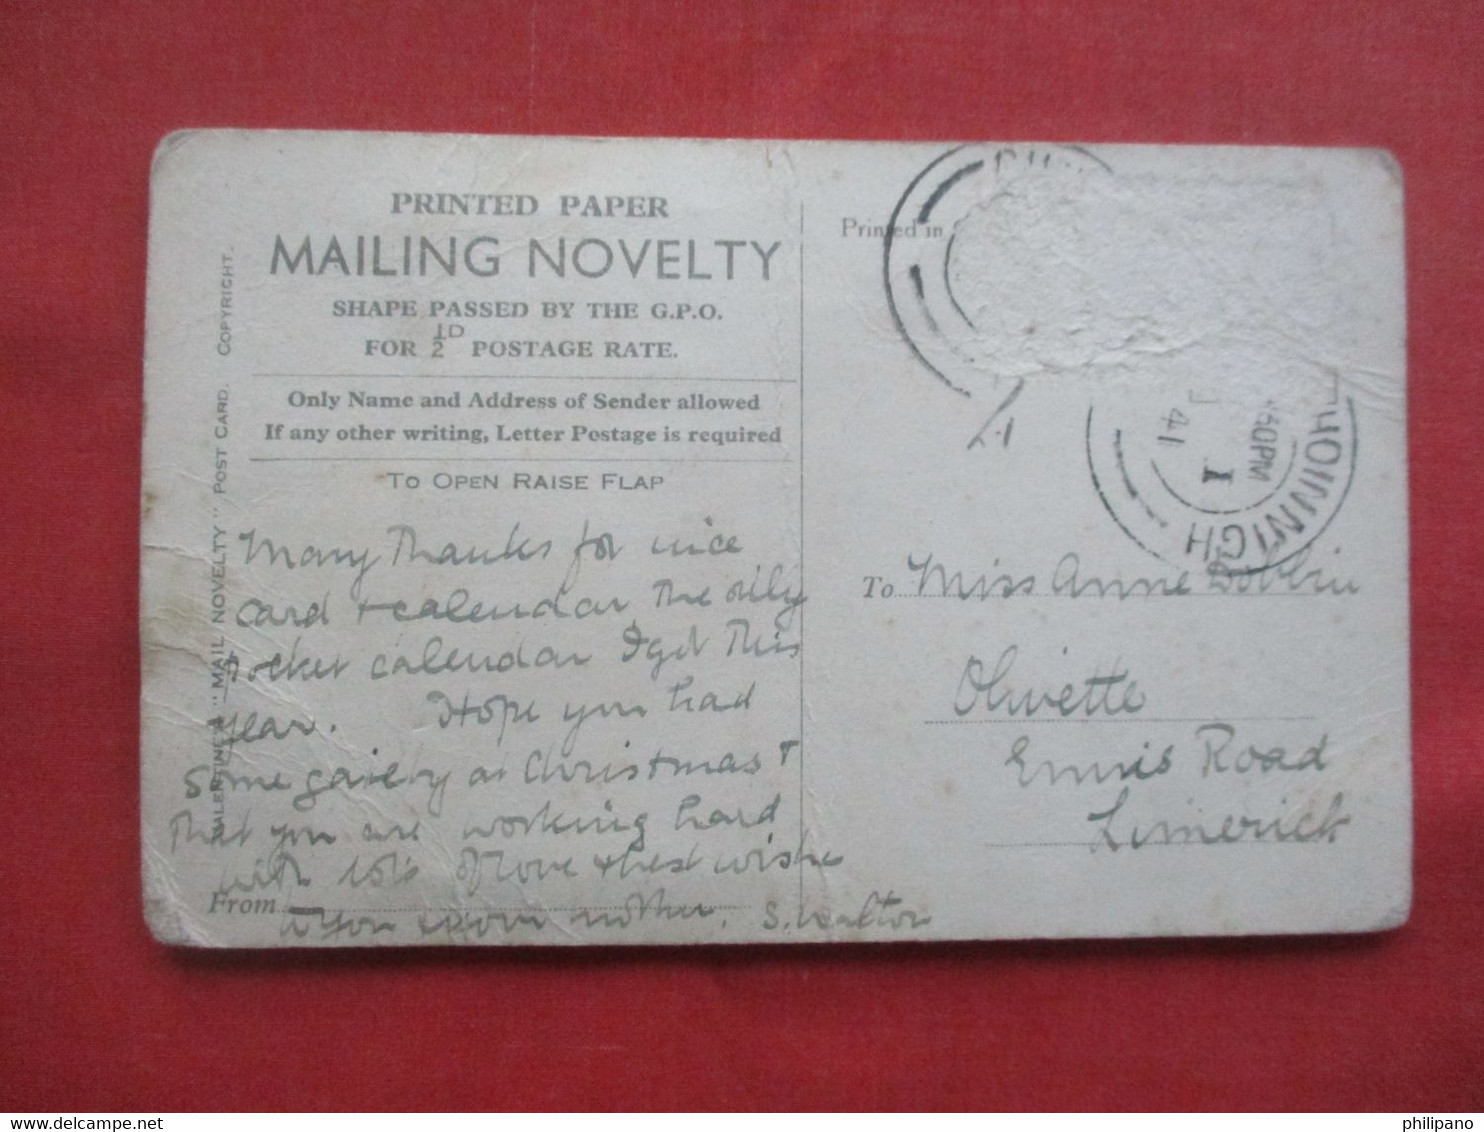 PRINTED PAPER
MAILING NOVELTY
SHAPE PASSED BY THE G.P.O.
FOR 1/2D POSTAGE RATE.
Only Name and Address of Sender allowed
If any other writing, Letter Postage is required
TO OPEN RAISE FLAP
VALENTINE'S "MAIL NOVELTY" POST CARD. COPYRIGHT.
Many thanks for nice
card + calendar, the only
pocket calendar I get this
year. Hope you had
some gaiety at Christmas +
that you are working hard
with lots of love + best wishes
to you + your mother. S. Walton
From
Printed in
41
I
PM
To Miss Anne
Olivette
Ennis Road
Limerick
philipano